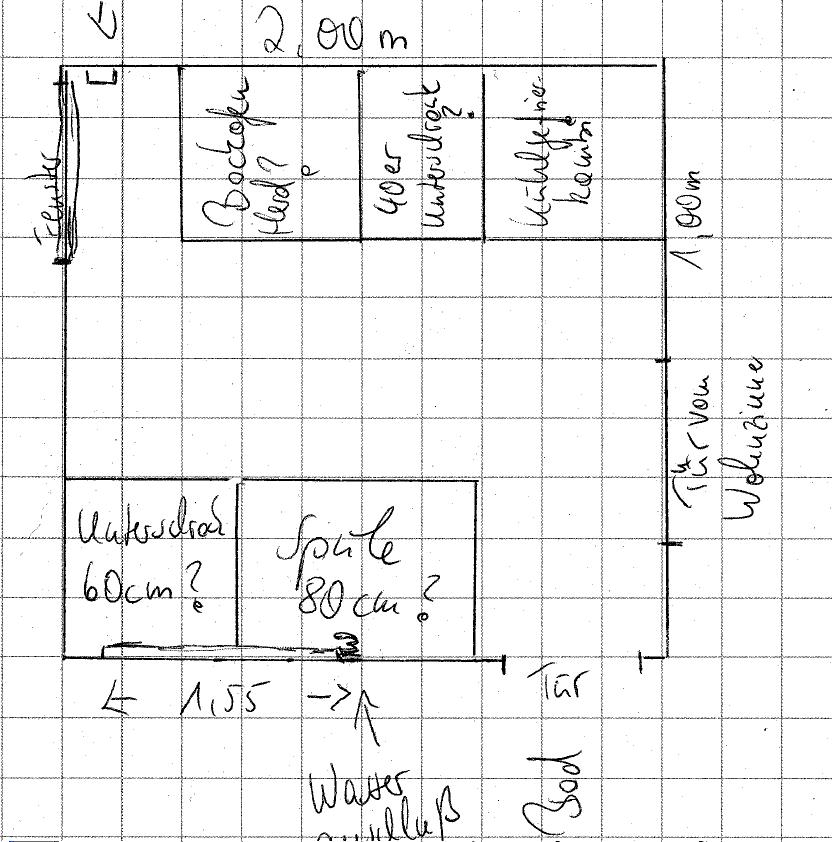 2,00 m
Fenster
Backofen
Herd?
40er
Unterschrank
?
Kühlgefrier-
kombi
1,00m
Tür vom
Wohnzimmer
Unterschrank
60cm?
Spüle
80cm?
← 1,55 →
Tür
Bad
Wasser
anschluß